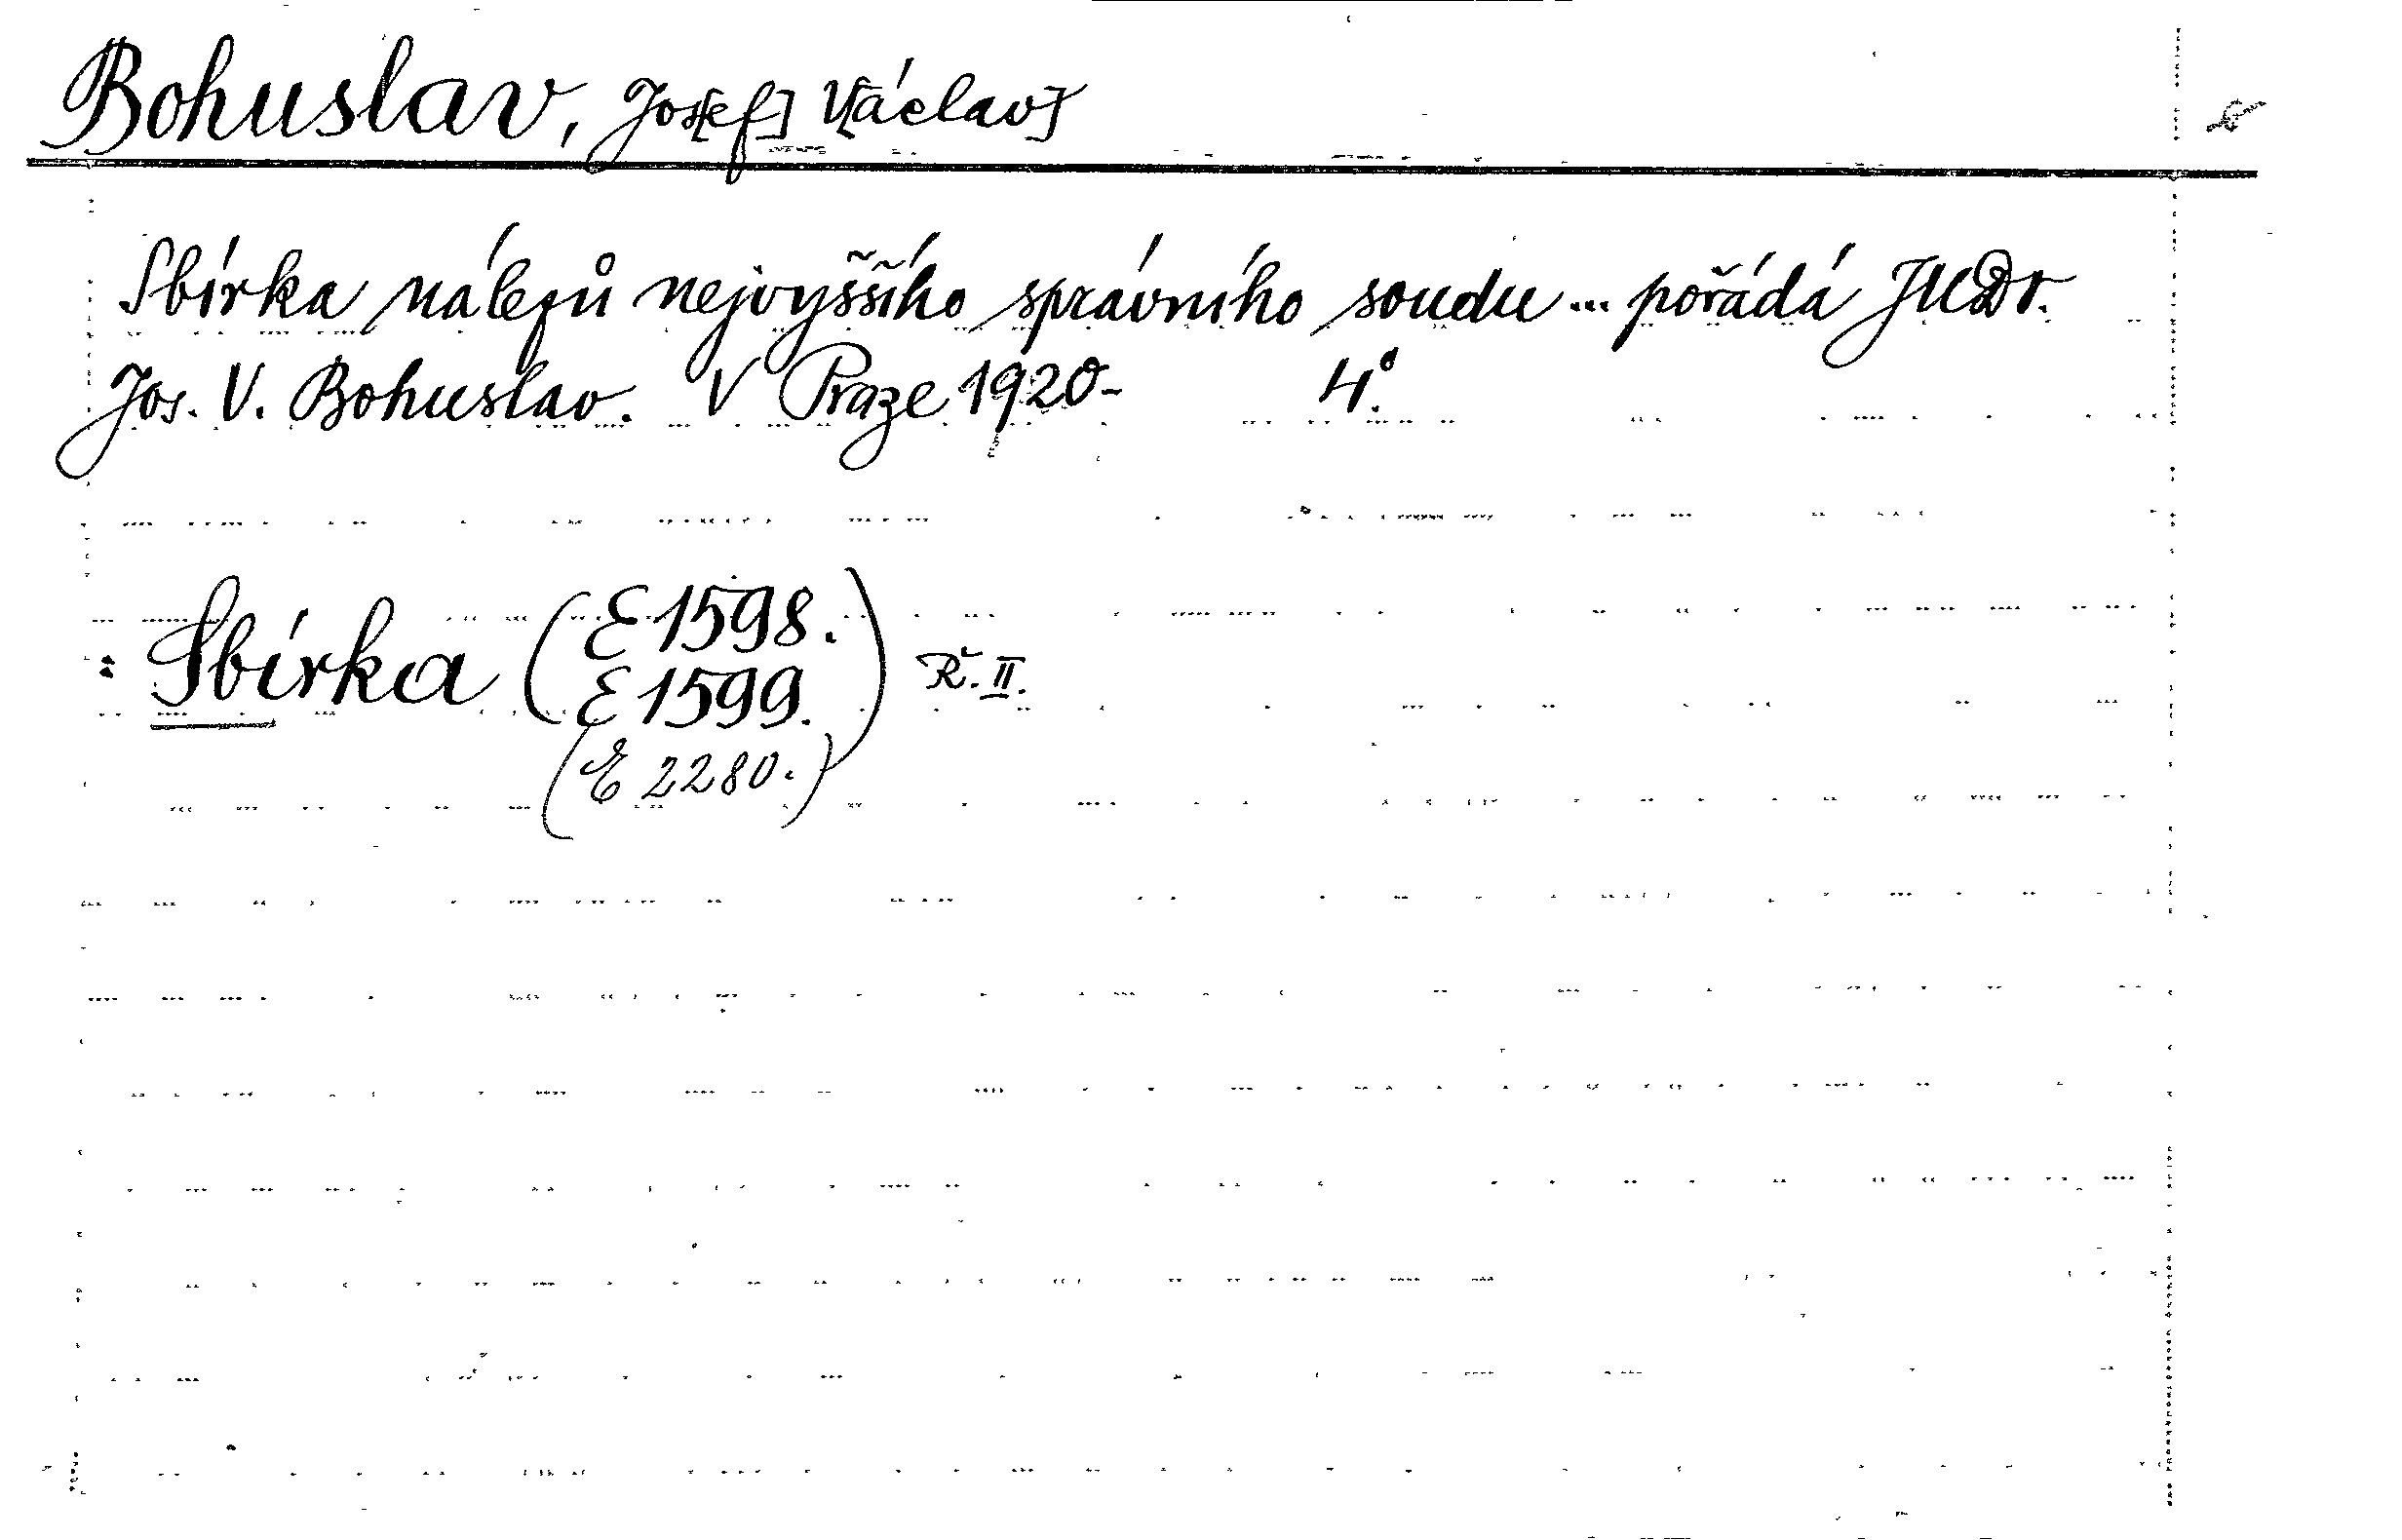 Bohuslav, Jos[ef] V[áclav]
Sbírka nálezů nejvyššího správního soudu ... pořádá JUDr.
Jos. V. Bohuslav. V Praze 1920- 4°.
: Sbírka (E 1598.
E 1599.) Ř. II.
(E 2280.)